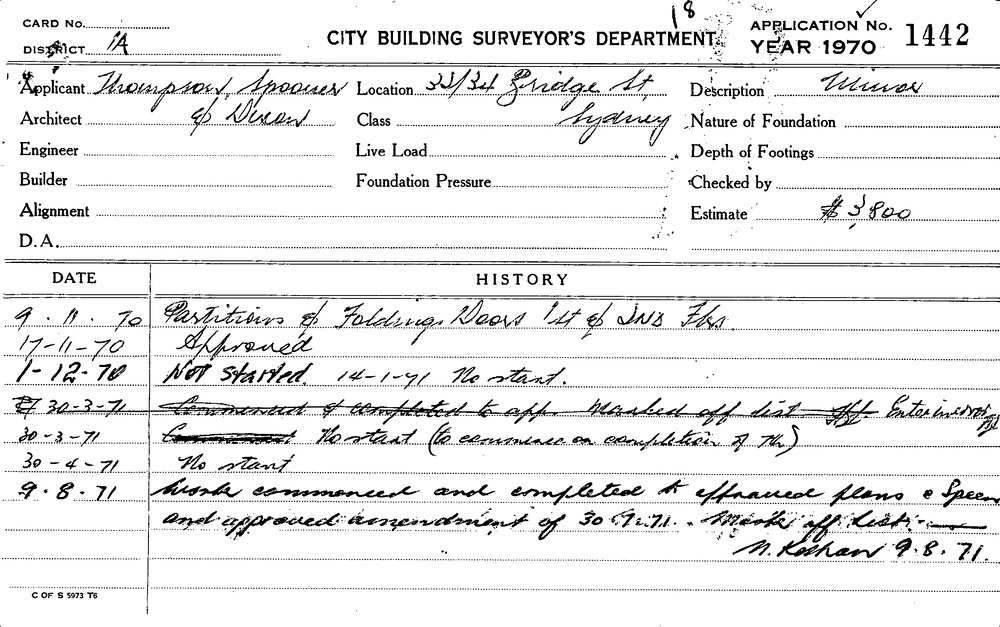 18
CARD No.
DISTRICT 1A
CITY BUILDING SURVEYOR'S DEPARTMENT
APPLICATION No. 1442
YEAR 1970
Applicant Thompson, Spooner Location 33/34 Bridge St, Description Minor
Architect & Dixon Class Sydney Nature of Foundation
Engineer Live Load Depth of Footings
Builder Foundation Pressure Checked by
Alignment Estimate $3,800
D.A.
DATE HISTORY
9.11.70 Partitions & Folding Doors 1st & 2ND Flrs.
17-11-70 Approved
1-12-70 Not Started. 14-1-71 No start.
30-3-71 Commenced & completed to app. Marked off list Entered in
30-3-71 No start (to commence on completion of 7th)
30-4-71 No start
9.8.71 Work commenced and completed to approved plans & Specs
and approved amendment of 30 9.71. Mark off List.
9.8.71.
C OF S 5973 T6